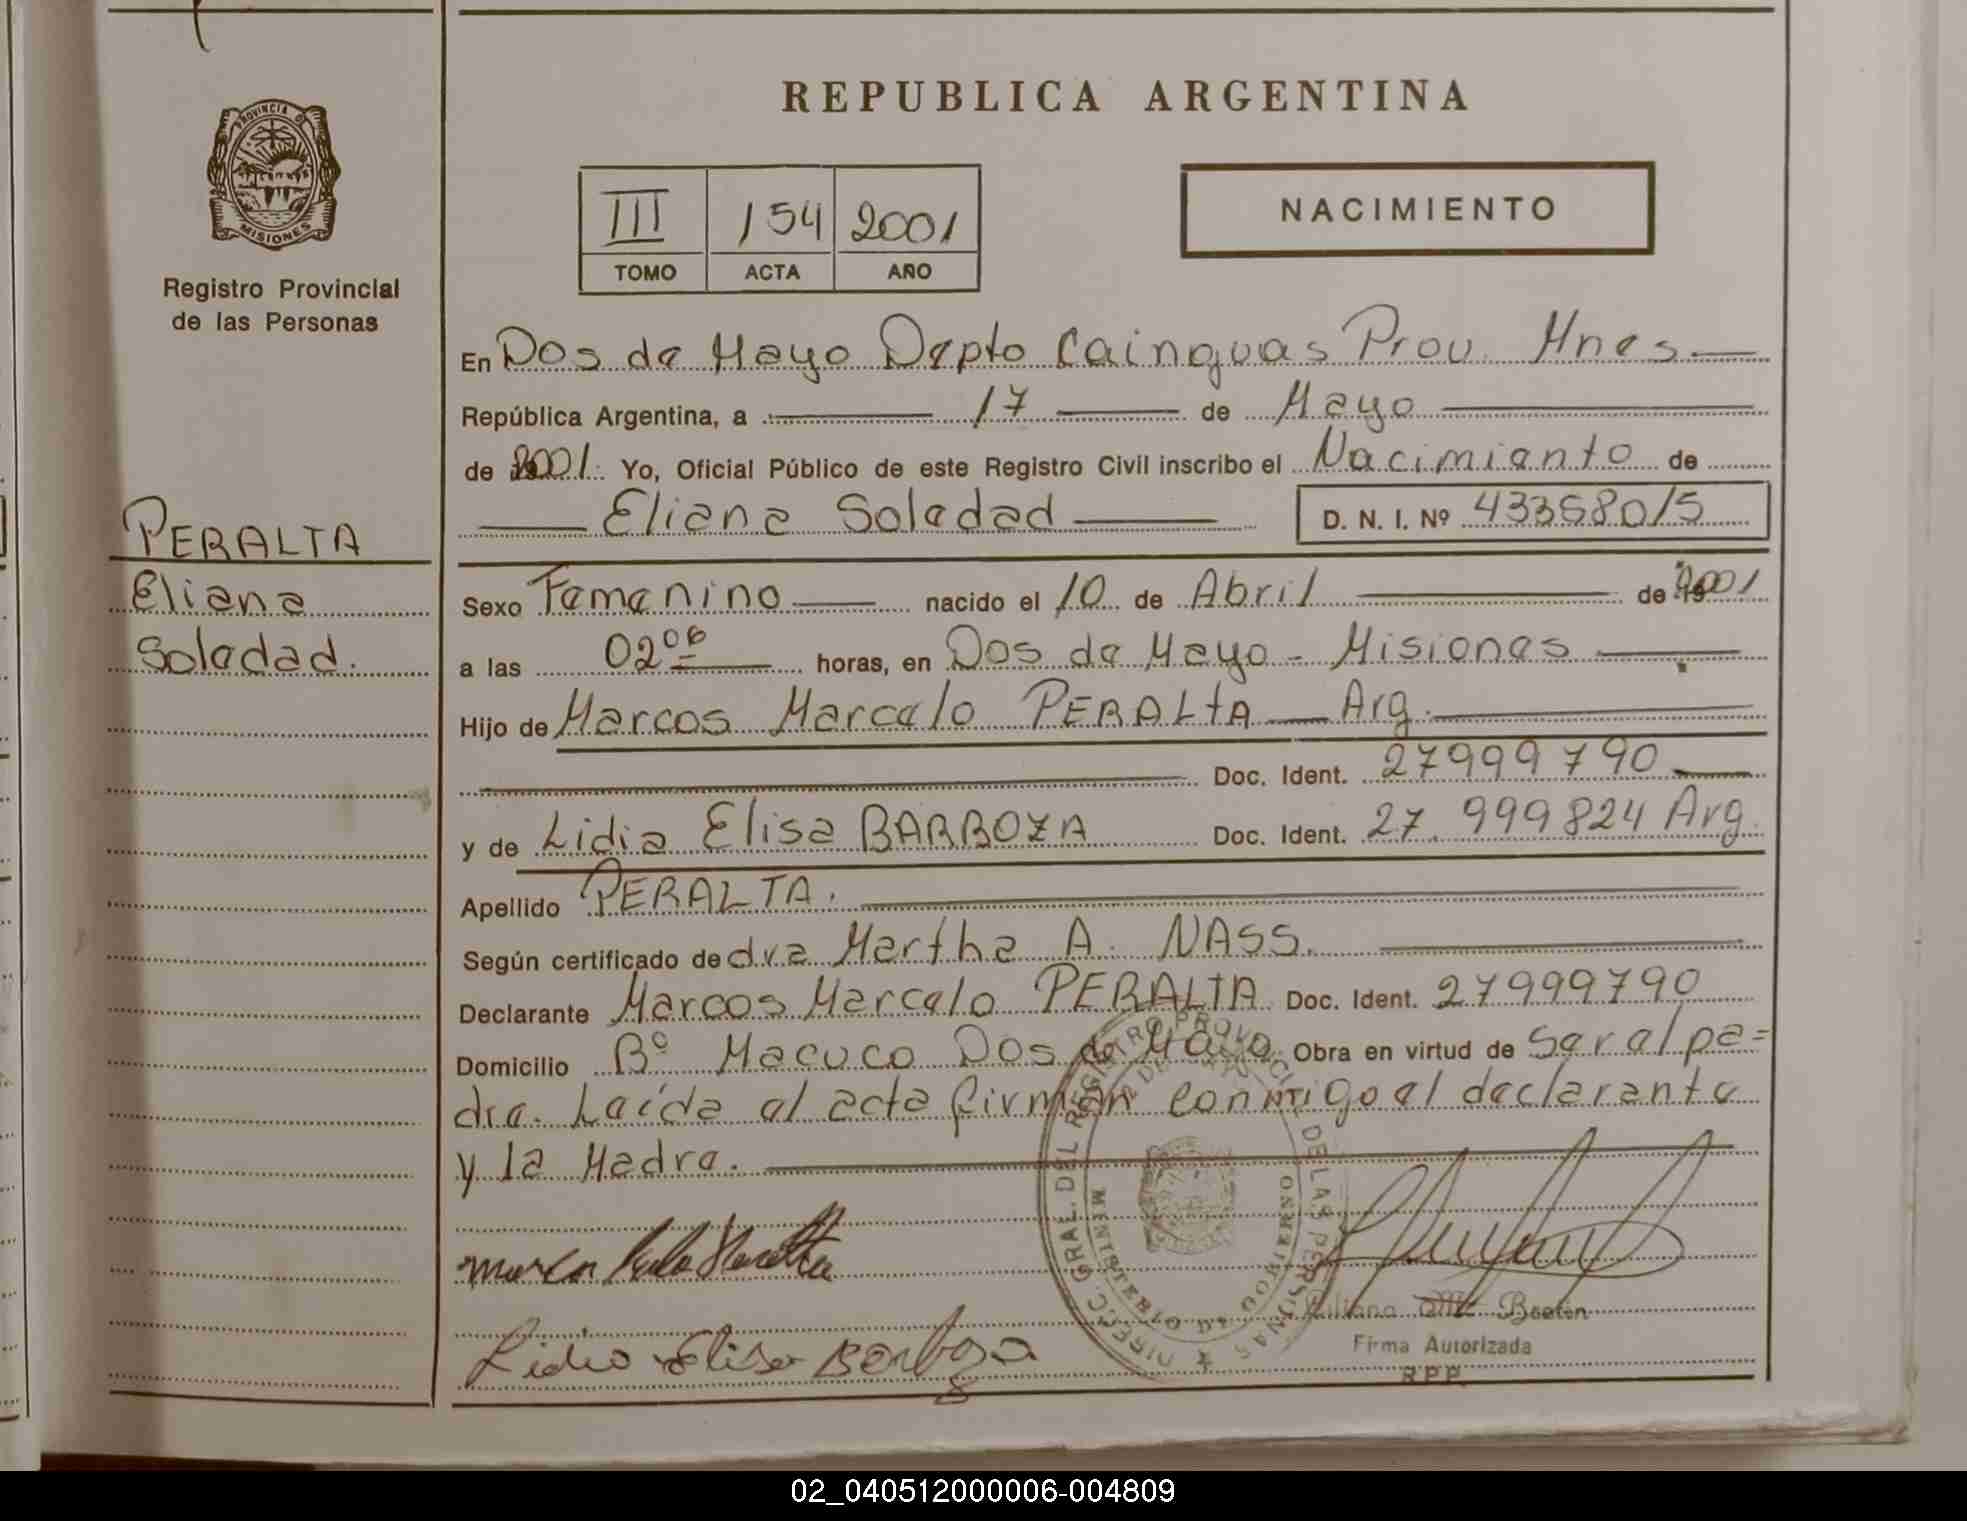 REPUBLICA ARGENTINA
PROVINCIA D
MISIONES
Registro Provincial
de las Personas
III 154 2001
TOMO ACTA AÑO
NACIMIENTO
En Dos de Mayo Depto Cainguas Prov. Mnes
República Argentina, a 17 de Mayo
de 2001. Yo, Oficial Público de este Registro Civil inscribo el Nacimiento de
Eliana Soledad D. N. I. Nº 43358015
PERALTA
Eliana
Soledad.
Sexo Femenino nacido el 10 de Abril de 2001
a las 02 06 horas, en Dos de Mayo - Misiones
Hijo de Marcos Marcelo PERALTA Arg.
Doc. Ident. 27999790
y de Lidia Elisa BARBOZA Doc. Ident. 27.999824 Arg.
Apellido PERALTA.
Según certificado de dra Martha A. NASS.
Declarante Marcos Marcelo PERALTA Doc. Ident. 27999790
Domicilio Bº Macuco Dos de Mayo Obra en virtud de Ser el pa=
dre. Leída el acta firman conmigo el declarante
y la Madre.
DIREC. GRAL. DEL REGISTRO PROVINCIAL DE LAS PERSONAS
MINISTERIO DE GOBIERNO
Lidia Elisa Barboza
Firma Autorizada
R.P.P.
02_040512000006-004809